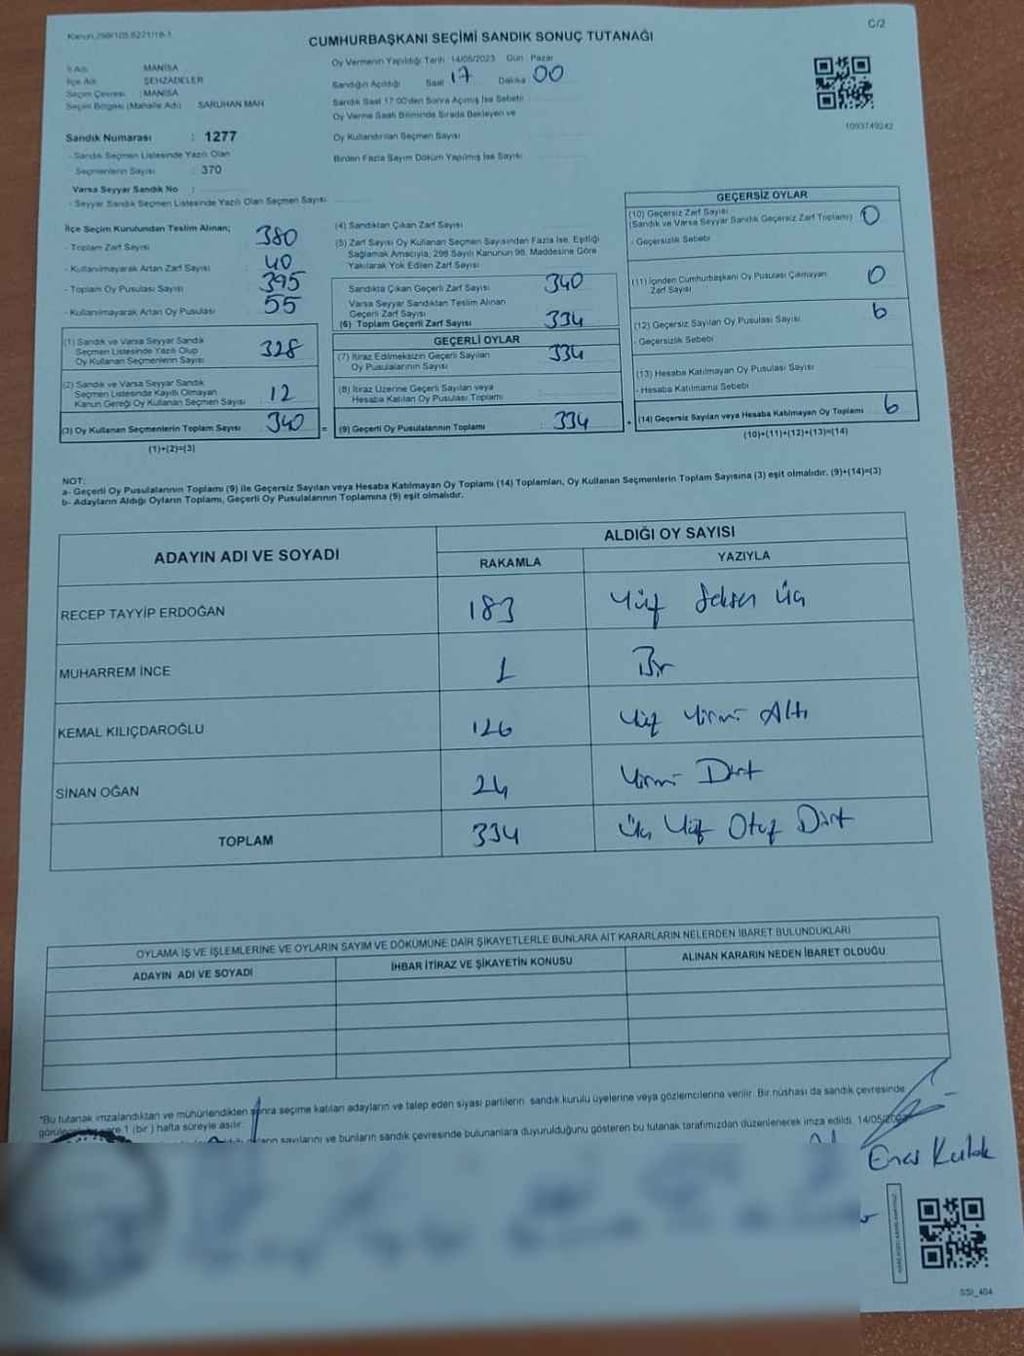 C/2
CUMHURBAŞKANI SEÇİMİ SANDIK SONUÇ TUTANAĞI
İl Adı MANİSA
İlçe Adı ŞEHZADELER
Seçim Çevresi : MANİSA
Seçim Bölgesi (Mahalle Adı) SARUHAN MAH
Sandık Numarası : 1277
- Sandık Seçmen Listesinde Yazılı Olan
Seçmenlerin Sayısı : 370
Varsa Seyyar Sandık No :
- Seyyar Sandık Seçmen Listesinde Yazılı Olan Seçmen Sayısı
Oy Vermenin Yapıldığı Tarih 14/05/2023 Gün Pazar
Sandığın Açıldığı Saat 17 Dakika 00
Sandık Saat 17:00'den Sonra Açılmış İse Sebebi
Oy Verme Saati Bitiminde Sırada Bekleyen ve
Oy Kullandırılan Seçmen Sayısı
Birden Fazla Sayım Döküm Yapılmış İse Sayısı
1093749242
İlçe Seçim Kurulundan Teslim Alınan;
- Toplam Zarf Sayısı 380
- Kullanılmayarak Artan Zarf Sayısı 40
- Toplam Oy Pusulası Sayısı 395
- Kullanılmayarak Artan Oy Pusulası 55
(1) Sandık ve Varsa Seyyar Sandık
Seçmen Listesinde Yazılı Olup
Oy Kullanan Seçmenlerin Sayısı 328
(2) Sandık ve Varsa Seyyar Sandık
Seçmen Listesinde Kayıtlı Olmayan
Kanun Gereği Oy Kullanan Seçmen Sayısı 12
(3) Oy Kullanan Seçmenlerin Toplam Sayısı 340
(1)+(2)=(3)
(4) Sandıktan Çıkan Zarf Sayısı
(5) Zarf Sayısı Oy Kullanan Seçmen Sayısından Fazla İse, Eşitliği
Sağlamak Amacıyla; 298 Sayılı Kanunun 98. Maddesine Göre
Yakılarak Yok Edilen Zarf Sayısı
Sandıkta Çıkan Geçerli Zarf Sayısı 340
Varsa Seyyar Sandıktan Teslim Alınan
Geçerli Zarf Sayısı
(6) Toplam Geçerli Zarf Sayısı 334
GEÇERLİ OYLAR
(7) İtiraz Edilmeksizin Geçerli Sayılan
Oy Pusulalarının Sayısı 334
(8) İtiraz Üzerine Geçerli Sayılan veya
Hesaba Katılan Oy Pusulası Toplamı
= (9) Geçerli Oy Pusulalarının Toplamı : 334
GEÇERSİZ OYLAR
(10) Geçersiz Zarf Sayısı
(Sandık ve Varsa Seyyar Sandık Geçersiz Zarf Toplamı) 0
- Geçersizlik Sebebi
(11) İçinden Cumhurbaşkanı Oy Pusulası Çıkmayan
Zarf Sayısı 0
(12) Geçersiz Sayılan Oy Pusulası Sayısı 6
- Geçersizlik Sebebi
(13) Hesaba Katılmayan Oy Pusulası Sayısı
- Hesaba Katılmama Sebebi
+ (14) Geçersiz Sayılan veya Hesaba Katılmayan Oy Toplamı 6
(10)+(11)+(12)+(13)=(14)
NOT:
a- Geçerli Oy Pusulalarının Toplamı (9) ile Geçersiz Sayılan veya Hesaba Katılmayan Oy Toplamı (14) Toplamları, Oy Kullanan Seçmenlerin Toplam Sayısına (3) eşit olmalıdır. (9)+(14)=(3)
b- Adayların Aldığı Oyların Toplamı, Geçerli Oy Pusulalarının Toplamına (9) eşit olmalıdır.
ADAYIN ADI VE SOYADI ALDIĞI OY SAYISI
RAKAMLA YAZIYLA
RECEP TAYYİP ERDOĞAN 183 Yüz Seksen Üç
MUHARREM İNCE 1 Bir
KEMAL KILIÇDAROĞLU 126 Yüz Yirmi Altı
SİNAN OĞAN 24 Yirmi Dört
TOPLAM 334 Üç Yüz Otuz Dört
OYLAMA İŞ VE İŞLEMLERİNE VE OYLARIN SAYIM VE DÖKÜMÜNE DAİR ŞİKAYETLERLE BUNLARA AİT KARARLARIN NELERDEN İBARET BULUNDUKLARI
ADAYIN ADI VE SOYADI İHBAR İTİRAZ VE ŞİKAYETİN KONUSU ALINAN KARARIN NEDEN İBARET OLDUĞU
*Bu tutanak imzalandıktan ve mühürlendikten sonra seçime katılan adayların ve talep eden siyasi partilerin, sandık kurulu üyelerine veya gözlemcilerine verilir. Bir nüshası da sandık çevresinde
1 (bir) hafta süreyle asılır.
sayılarını ve bunların sandık çevresinde bulunanlara duyurulduğunu gösteren bu tutanak tarafımızdan düzenlenerek imza edildi. 14/05/2023
Enes
SSI_404